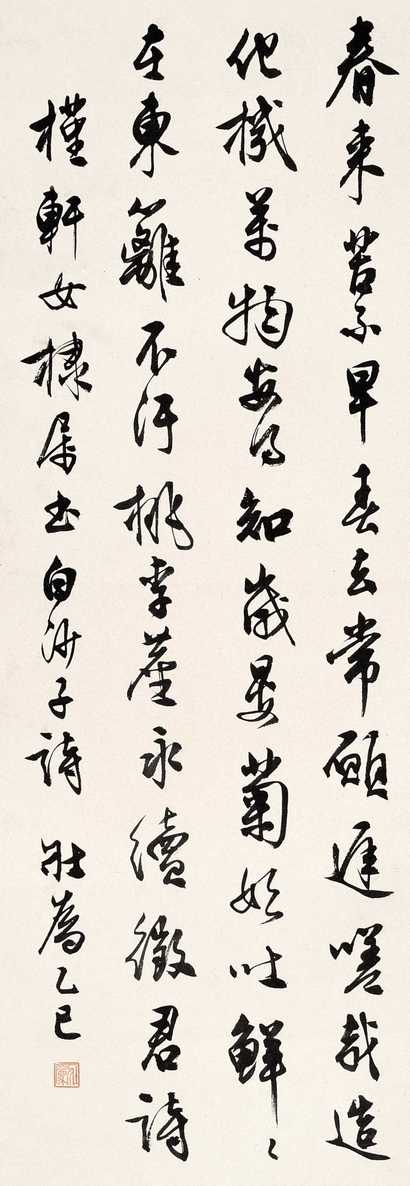 春來苦不早春去常願遲嗟哉造
化機萬物安得知歲晏菊始吐鮮〻
在東籬不汙桃李塵永續徵君詩
槿軒女棣屬書白沙子詩 壯為乙巳